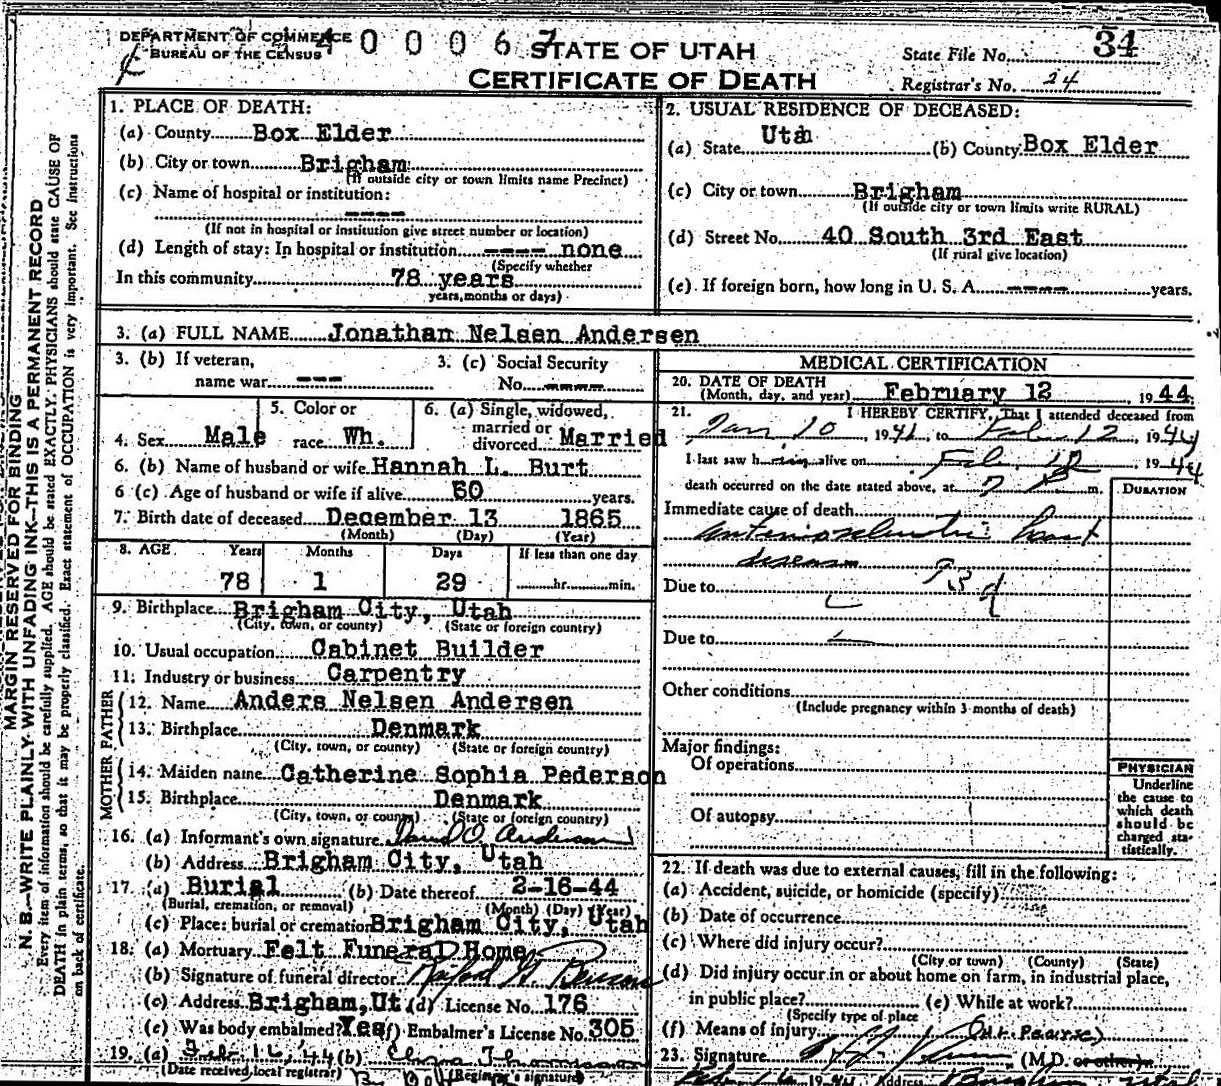 DEPARTMENT OF COMMERCE
BUREAU OF THE CENSUS
STATE OF UTAH
CERTIFICATE OF DEATH
State File No. 34
Registrar's No. 24
MARGIN RESERVED FOR BINDING
N. B.—WRITE PLAINLY WITH UNFADING INK—THIS IS A PERMANENT RECORD
Every item of information should be carefully supplied. AGE should be stated EXACTLY. PHYSICIANS should state CAUSE OF
DEATH in plain terms, so that it may be properly classified. Exact statement of OCCUPATION is very important. See Instructions
on back of certificate.
1. PLACE OF DEATH:
(a) County Box Elder
(b) City or town Brigham
(If outside city or town limits name Precinct)
(c) Name of hospital or institution:
----
(If not in hospital or institution give street number or location)
(d) Length of stay: In hospital or institution ---- none
(Specify whether
In this community 78 years
years, months or days)
2. USUAL RESIDENCE OF DECEASED:
(a) State Utah (b) County Box Elder
(c) City or town Brigham
(If outside city or town limits write RURAL)
(d) Street No. 40 South 3rd East
(If rural give location)
(e) If foreign born, how long in U. S. A. ---- years.
3. (a) FULL NAME Jonathan Nelsen Andersen
3. (b) If veteran,
name war ---
3. (c) Social Security
No. ----
4. Sex Male
5. Color or
race Wh.
6. (a) Single, widowed,
married or
divorced Married
6. (b) Name of husband or wife Hannah L. Burt
6 (c) Age of husband or wife if alive 60 years.
7. Birth date of deceased December 13 1865
(Month) (Day) (Year)
8. AGE Years Months Days If less than one day
78 1 29 hr. min.
9. Birthplace Brigham City, Utah
(City, town, or county) (State or foreign country)
10. Usual occupation Cabinet Builder
11. Industry or business Carpentry
FATHER
12. Name Anders Nelsen Andersen
13. Birthplace Denmark
(City, town, or county) (State or foreign country)
MOTHER
14. Maiden name Catherine Sophia Pederson
15. Birthplace Denmark
(City, town, or county) (State or foreign country)
16. (a) Informant's own signature
(b) Address Brigham City, Utah
17. (a) Burial (b) Date thereof 2-16-44
(Burial, cremation, or removal) (Month) (Day) (Year)
(c) Place: burial or cremation Brigham City, Utah
18. (a) Mortuary Felt Funeral Home
(b) Signature of funeral director
(c) Address Brigham, Ut (d) License No. 176
(e) Was body embalmed? Yes (f) Embalmer's License No. 305
19. (a) Feb 16, '44 (b)
(Date received local registrar) (Registrar's signature)
MEDICAL CERTIFICATION
20. DATE OF DEATH
(Month, day, and year) February 12, 1944
21. I HEREBY CERTIFY, That I attended deceased from
Jan 10, 1941, to Feb 12, 1944
I last saw him alive on Feb. 12 1944
death occurred on the date stated above, at 7 P m.
DURATION
Immediate cause of death
heart
disease
Due to
Due to
Other conditions
(Include pregnancy within 3 months of death)
Major findings:
Of operations
Of autopsy
PHYSICIAN
Underline
the cause to
which death
should be
charged sta-
tistically.
22. If death was due to external causes, fill in the following:
(a) Accident, suicide, or homicide (specify)
(b) Date of occurrence
(c) Where did injury occur?
(City or town) (County) (State)
(d) Did injury occur in or about home on farm, in industrial place,
in public place? (e) While at work?
(Specify type of place
(f) Means of injury
23. Signature (M.D. or other)